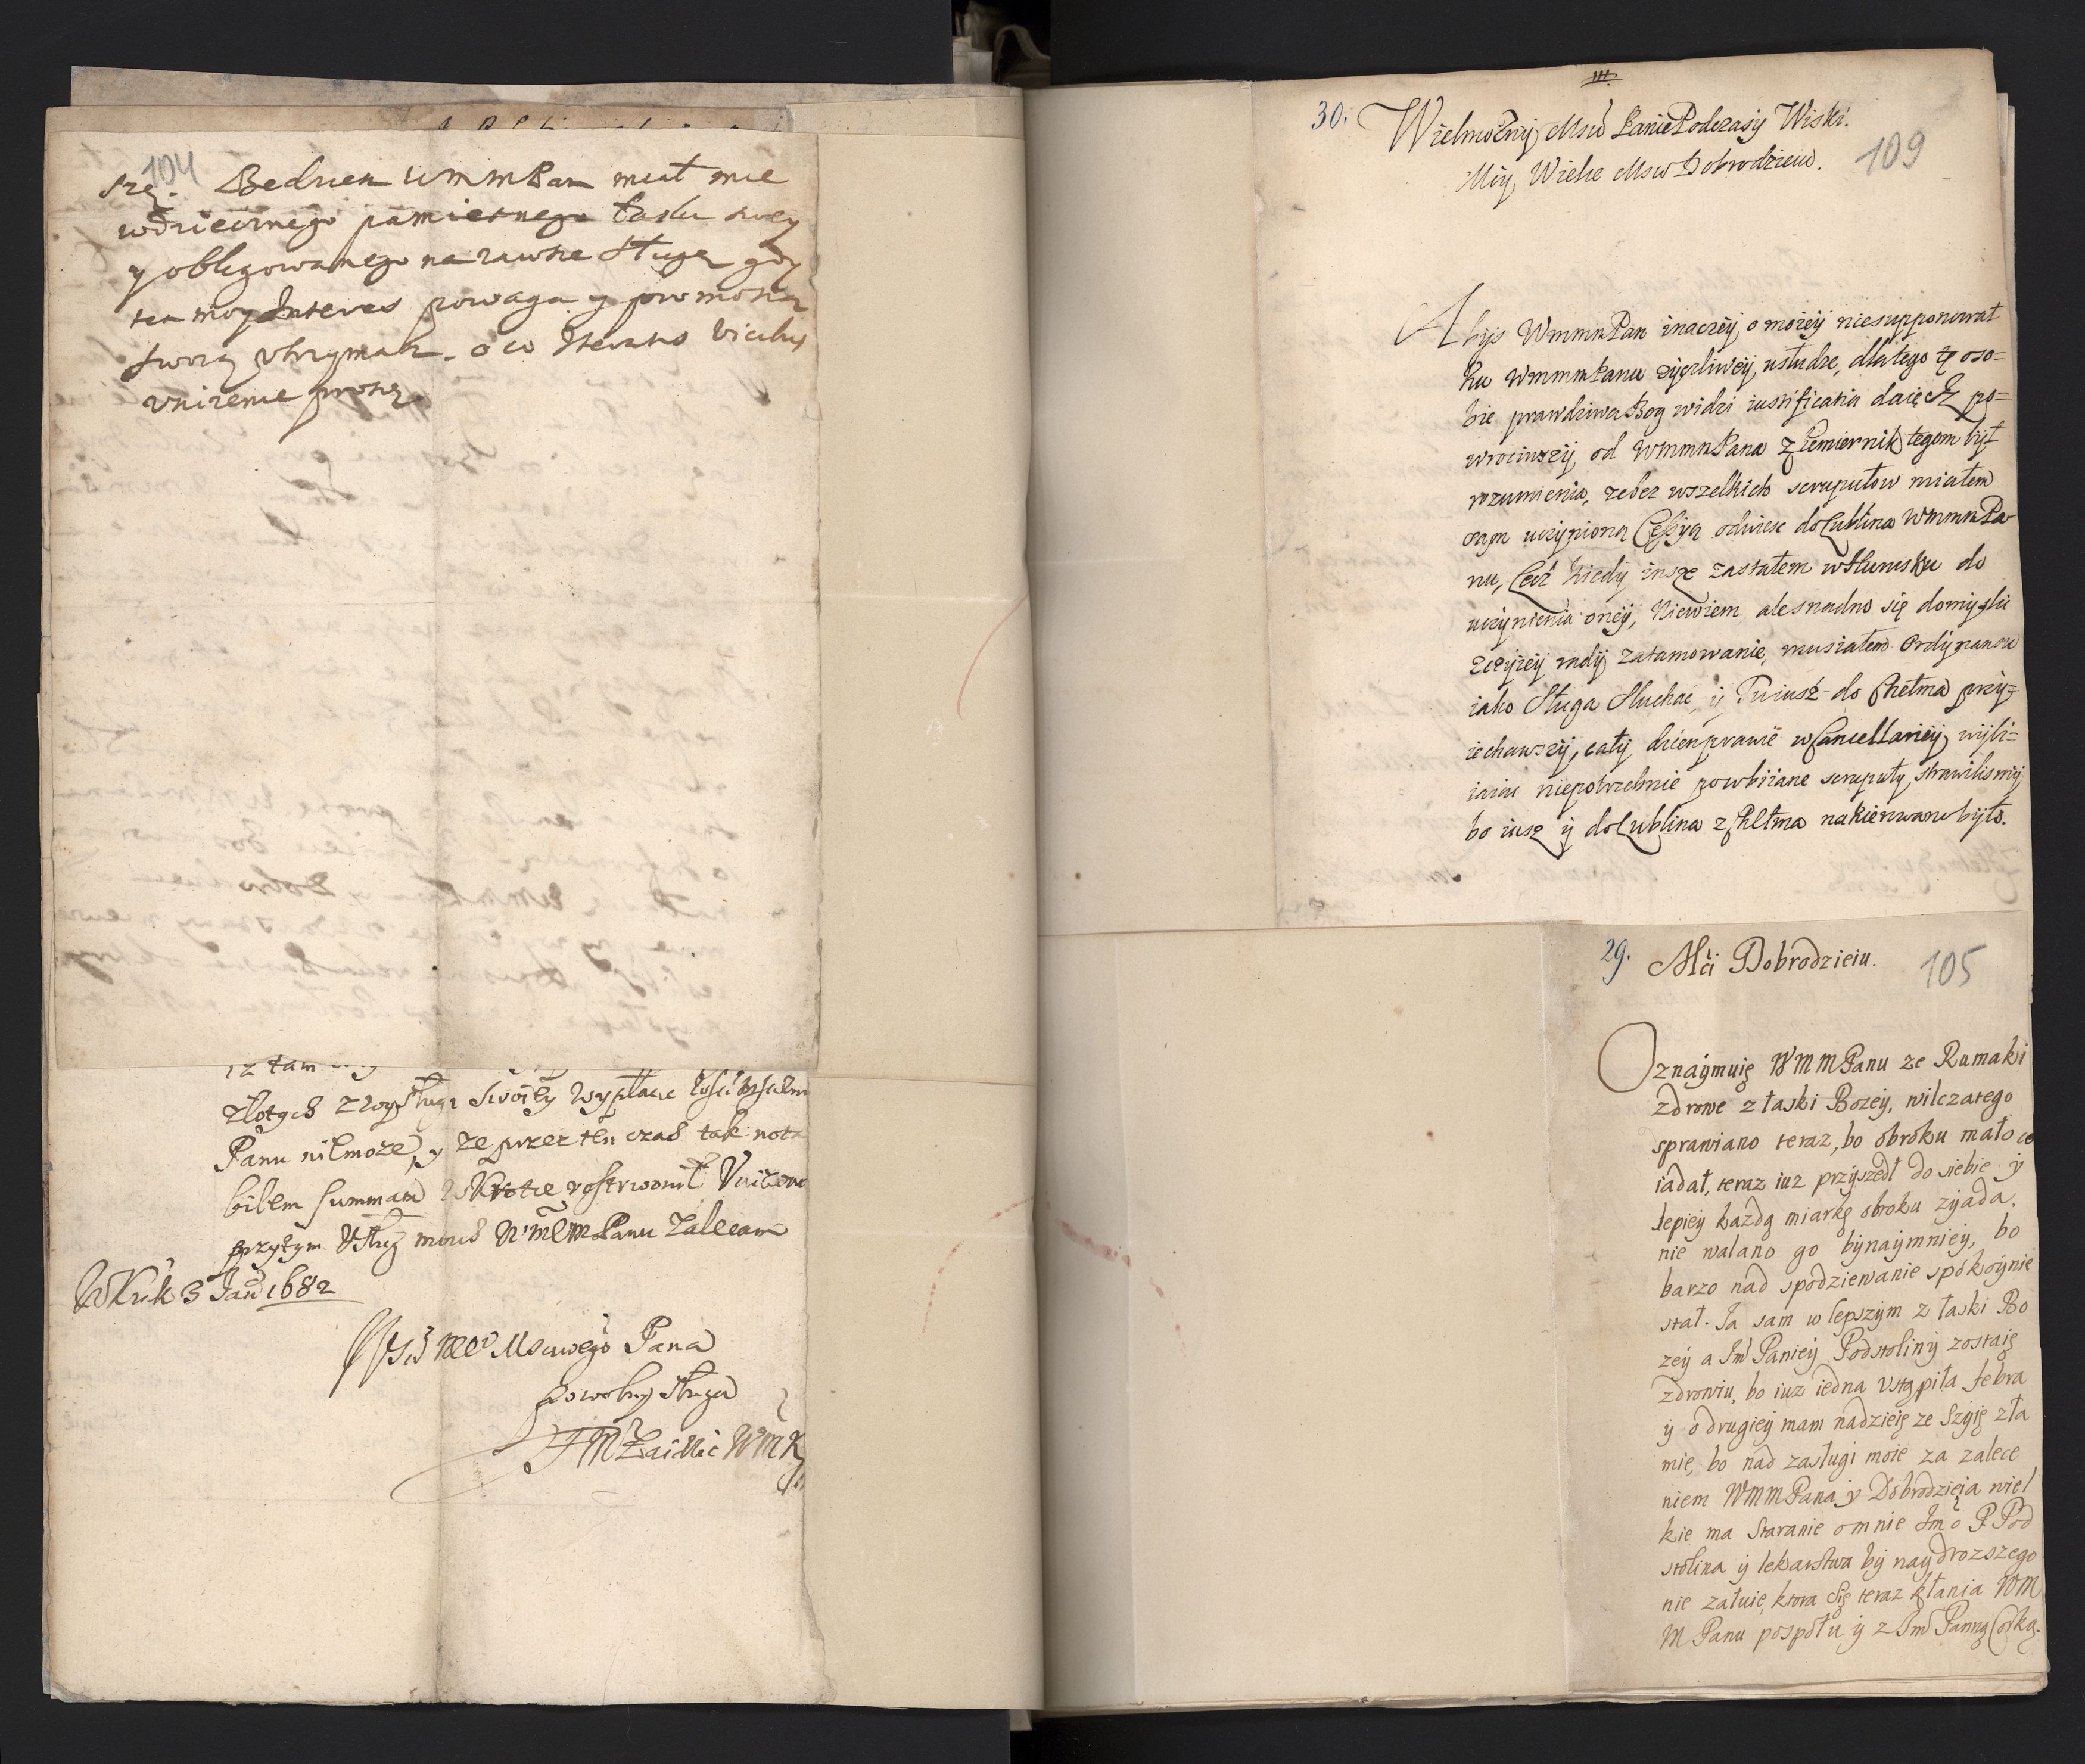 104
szę. Będziesz WMMPan miał mie
wdziecznego pamiętnego łaski swey
y obligowanego na zawsze sługę gdy
ten moy Interes powagą y promocyą
swoią vtrzymasz. o co iteratis vicibus
vnizenie proszę
iz tam
złotych z
Panu niemoze, y ze przez ten czas tak
bilem summam
przytym Usług moich Panu Zalecam
8 Jan 1682
Mscwego Pana
powolny sługa
30.
III.
109
Wielmozny Msci Panie Podczaszy Wiski.
Mię Wielce Msci Dobrodzieiu.
Abys WmmmPan inaczey o moiey niesupponował
ku WmmmPanu zyczliwey usłudze, dlatego tę oso=
bie prawdziwa Bog widzi iustificatia daię Iz po=
wrociwszy od WmmmPana z Czemiernik tegom był
rozumienia, ze bez wszelkich scrupułow miałem
onym uczyniona Cessyą odwiesc do Lublina WmmmPa
nu, Lecz kiedy insze zastałem w do
uczynienia oney, Niewiem, ale snadno się domyslic
zczyiey rady zatamowanie, musiałem Ordynansu
iako Sługa Słuchac, y do Chełma przy=
iechawszy, cały dzien prawie w Cancellariey wybi=
iaiac niepotrzebnie powbiiane scrupuły strawilismy,
bo iusz y do Lublina z Chełma nakierowano było.
29.
105
Mći Dobrodzieiu.
Oznaymuię WMMPanu ze Rumaki
zdrowe z łaski Bozey, wilczatego
sprawiano teraz, bo obroku mało co
iadał, teraz iuz przyszedł do siebie y
lepiey kazdą miarkę obroku zyada.
nie walano go bynaymniey, bo
barzo nad spodziewanie spokoynie
stał. Ja sam w lepszym z łaski Bo
zey a Jm Paniey Podstoliny zostaię
zdrowiu, bo iuz iedna vstąpiła febra
y o drugiey mam nadzieię ze Szyię zła
mie, bo nad zasługi moie za zalece
niem WMMPana y Dobrodzieia wiel
kie ma Staranie omnie Jmć P. Pod
stolina y lekarstwa by naydrozszego
nie załuie, ktora Się teraz kłania WM
MPanu pospołu y z Jm Panną Corką.